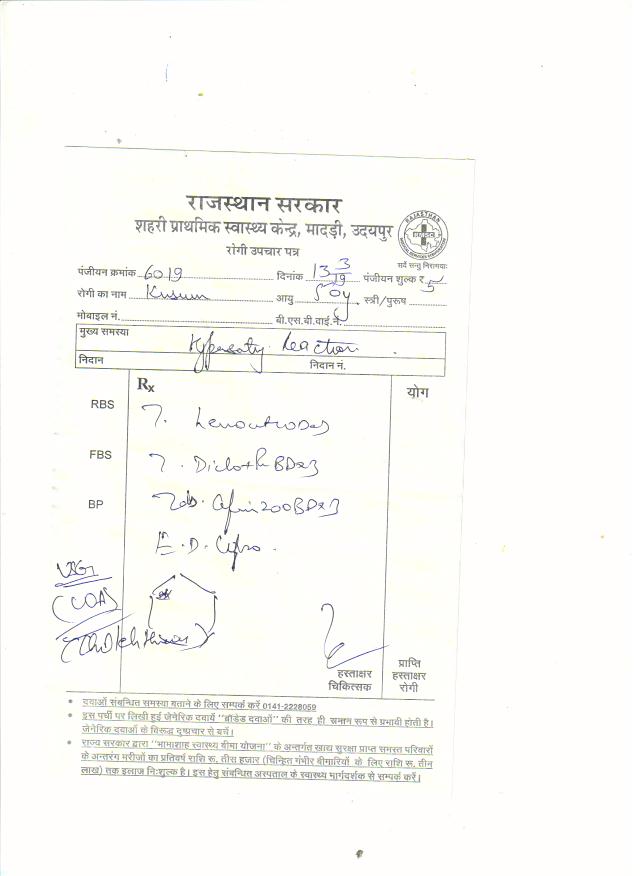 राजस्थान सरकार
शहरी प्राथमिक स्वास्थ्य केन्द्र, मादड़ी, उदयपुर
रोगी उपचार पत्र
RAJASTHAN
सर्वे सन्तु निरामयाः
पंजीयन क्रमांक 6019 दिनांक 13 3 19 पंजीयन शुल्क रु. 5
रोगी का नाम Kusum आयु 50y स्त्री/पुरूष
मोबाइल नं. बी.एस.बी.वाई.नं.
मुख्य समस्या
Reaction
निदान निदान नं.
Rx योग
RBS
T.
FBS
T. BDx3
BP
Tab. 200BDx3
E.D. Cipro.
हस्ताक्षर चिकित्सक
प्राप्ति हस्ताक्षर रोगी
• दवाओं संबन्धित समस्या बताने के लिए सम्पर्क करें 0141-2228059
• इस पर्ची पर लिखी हुई जेनेरिक दवायें "ब्रांडेड दवाओं" की तरह ही समान रूप से प्रभावी होती है।
जेनेरिक दवाओं के विरूद्ध दुष्प्रचार से बचें।
• राज्य सरकार द्वारा "भामाशाह स्वास्थ्य बीमा योजना" के अन्तर्गत खाद्य सुरक्षा प्राप्त समस्त परिवारों
के अन्तरंग मरीजों का प्रतिवर्ष राशि रू. तीस हजार (चिन्हित गंभीर बीमारियों के लिए राशि रू. तीन
लाख) तक इलाज निःशुल्क है। इस हेतु संबन्धित अस्पताल के स्वास्थ्य मार्गदर्शक से सम्पर्क करें।